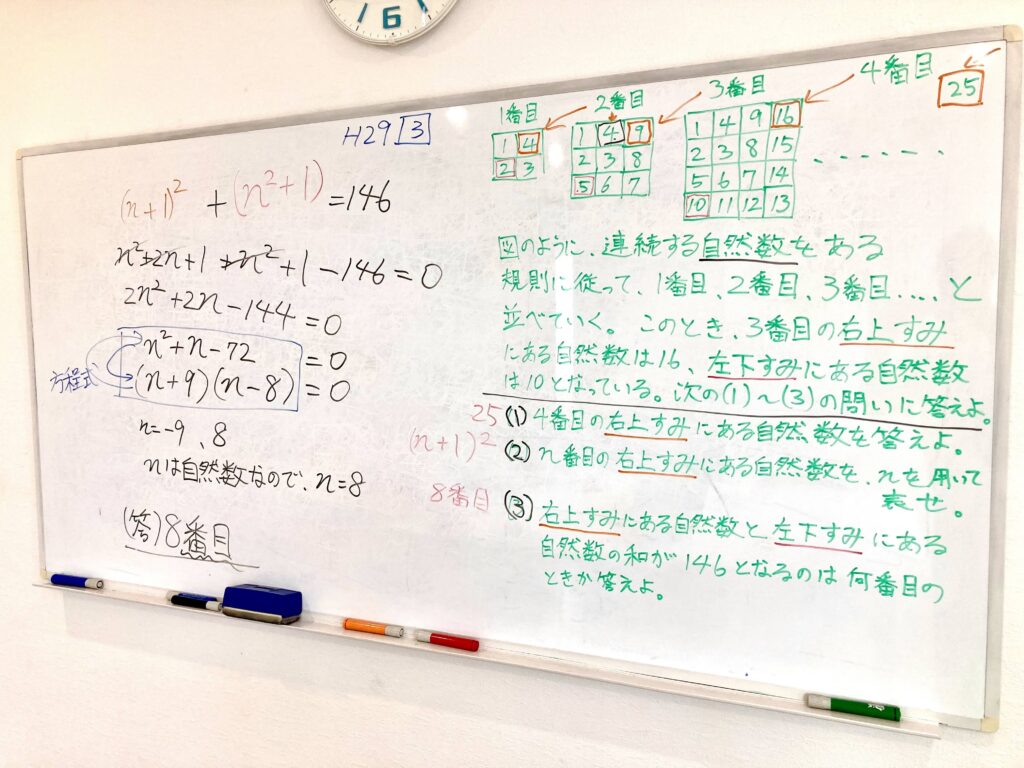 6
H29 3
(n+1)² + (n²+1) = 146
n²+2n+1+n²+1-146=0
2n²+2n-144=0
n²+n-72=0
方程式
(n+9)(n-8)=0
n=-9、8
nは自然数なので、n=8
(答)8番目
1番目
1 4
2 3
2番目
1 4 9
2 3 8
5 6 7
3番目
1 4 9 16
2 3 8 15
5 6 7 14
10 11 12 13
4番目
25
図のように、連続する自然数をある
規則に従って、1番目、2番目、3番目....と
並べていく。このとき、3番目の右上すみ
にある自然数は16、左下すみにある自然数
は10となっている。次の(1)~(3)の問いに答えよ。
25 (1) 4番目の右上すみにある自然数を答えよ。
(n+1)² (2) n番目の右上すみにある自然数を、nを用いて
表せ。
8番目 (3) 右上すみにある自然数と左下すみにある
自然数の和が146となるのは何番目の
ときか答えよ。